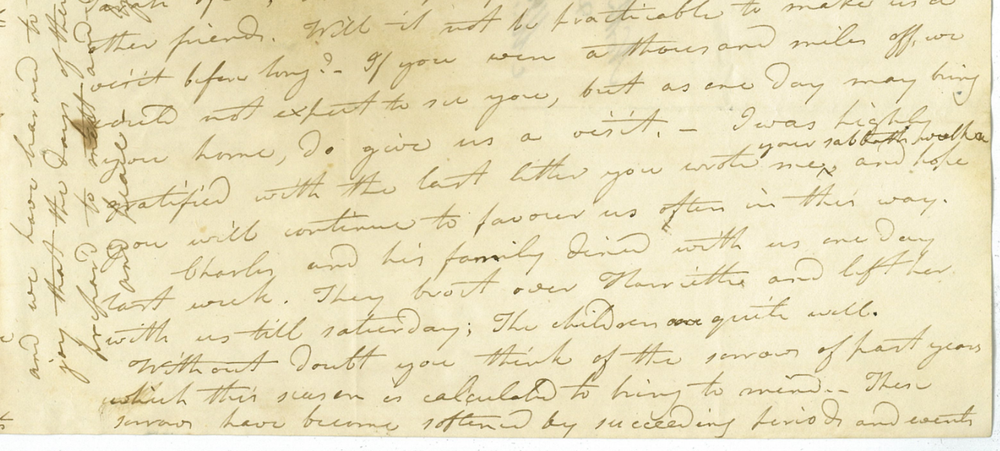 other friends. Will it not be practicable to make us a
visit before long? - If you were a thousand miles off, we
would not expect to see you, but as one day may bring
you home, do give us a visit. - I was highly
your sabbath walk &
gratified with the last letter you wrote me, and hope
you will continue to favour us often in this way.
Charles and his family dined with us one day
last week. They brot over Harriette and left her
with us till saturday; The children are quite well.
Without doubt you think of the sorrows of past years
which this season is calculated to bring to mind - These
sorrows have become softened by succeeding periods and events
and we have learned to
joy that the days of the
prepared to meet
and peace